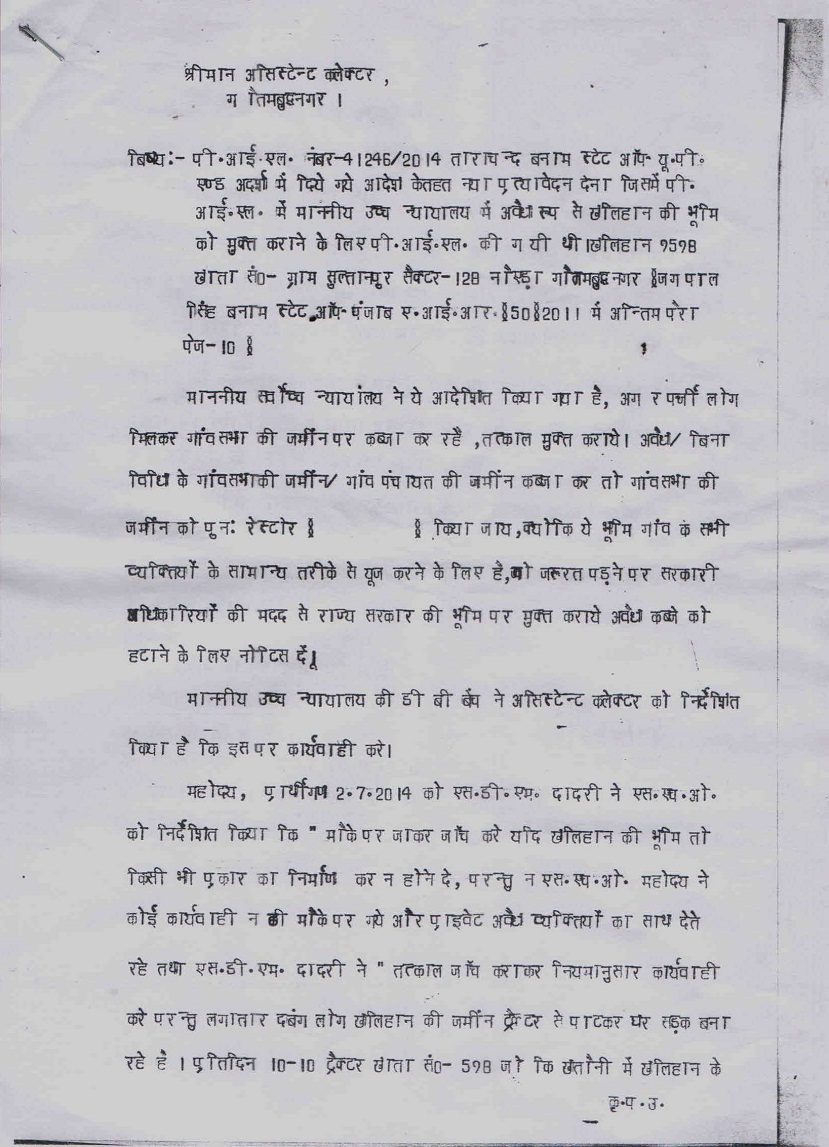 श्रीमान असिस्टेन्ट क्लेक्टर ,
ग ौतमबुद्धनगर ।
बिषय:- पी॰आई॰एल॰ नंबर-41246/2014 ताराचन्द बनाम स्टेट ऑफ यू॰पी॰
एण्ड अदर्श में दिये गये आदेश केतहत नया प्रत्यावेदन देना जिसमें पी॰
आई॰एल॰ में माननीय उच्च न्यायालय में अवैध रूप से खलिहान की भूमि
को मुक्त कराने के लिए पी॰आई॰एल॰ की गयी थी ।खलिहान 9598
खाता सं0- ग्राम सुल्तानपुर सैक्टर-128 नौएड़ा गौतमबुद्धनगर §जगपाल
सिंह बनाम स्टेट ऑफ-पंजाब ए॰आई॰आर॰§50§2011 में अन्तिम पैरा
पेज-10 §
माननीय सर्वोच्च न्यायालय ने ये आदेशित किया गया है, अगर फर्जी लोग
मिलकर गांवसभा की जमीन पर कब्जा कर रहे ,तत्काल मुक्त कराये। अवैध/ बिना
विधि के गांवसभाकी जमींन/ गांव पंचायत की जमींन कब्जा कर तो गांवसभा की
जमींन को पुन: रेस्टोर § § किया जाय,क्योकि ये भूमि गांव के सभी
व्यक्तियों के सामान्य तरीके से यूज करने के लिए है, जरूरत पड़ने पर सरकारी
अधिकारियों की मदद से राज्य सरकार की भूमि पर मुक्त कराये अवैध कब्जे को
हटाने के लिए नोटिस दें।
माननीय उच्च न्यायालय की डी बी बेंच ने असिस्टेन्ट क्लेक्टर को निर्देशित
किया है कि इस पर कार्यवाही करे।
महोदय, प्रार्थीगण 2॰7॰2014 को एस॰डी॰एम॰ दादरी ने एस॰एच॰ओ॰
को निर्देशित किया कि " मौके पर जाकर जाँच करे यदि खलिहान की भूमि तो
किसी भी प्रकार का निर्माण कर न होने दे, परन्तु न एस॰एच॰ओ॰ महोदय ने
कोई कार्यवाही न की मौके पर गये और प्राइवेट अवैध व्यक्तियों का साथ देते
रहे तथा एस॰डी॰एम॰ दादरी ने " तत्काल जाँच कराकर नियमानुसार कार्यवाही
करे परन्तु लगातार दबंग लोग खलिहान की जमींन ट्रैक्टर से पाटकर घर सड़क बना
रहे है । प्रतिदिन 10-10 ट्रैक्टर खाता सं0- 598 जो कि खतौनी में खलिहान के
कृ॰प॰उ॰